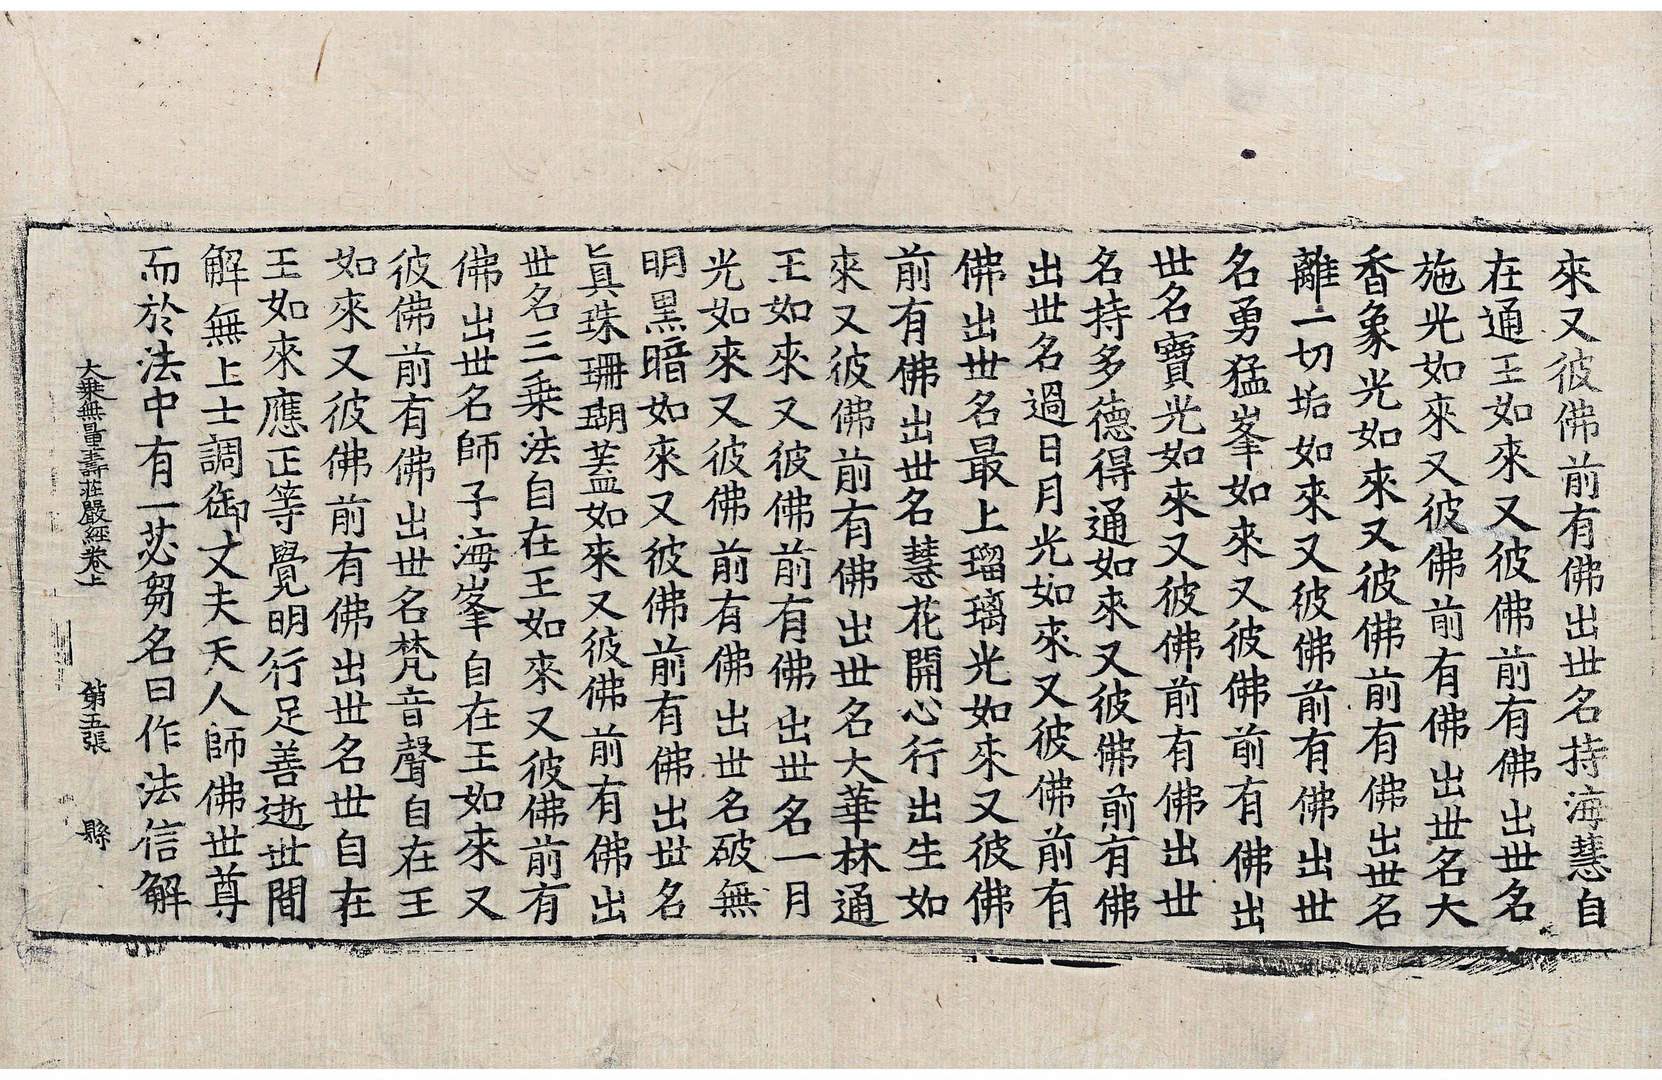 來又彼佛前有佛出世名持海慧自
在通王如來又彼佛前有佛出世名
施光如來又彼佛前有佛出世名大
香象光如來又彼佛前有佛出世名
離一切垢如來又彼佛前有佛出世
名勇猛峯如來又彼佛前有佛出
世名寶光如來又彼佛前有佛出世
名持多德得通如來又彼佛前有佛
出世名過日月光如來又彼佛前有
佛出世名最上瑠璃光如來又彼佛
前有佛出世名慧花開心行出生如
來又彼佛前有佛出世名大華林通
王如來又彼佛前有佛出世名一月
光如來又彼佛前有佛出世名破無
明黑暗如來又彼佛前有佛出世名
眞珠珊瑚蓋如來又彼佛前有佛出
世名三乗法自在王如來又彼佛前有
佛出世名師子海峯自在王如來又
彼佛前有佛出世名梵音聲自在王
如來又彼佛前有佛出世名世自在
王如來應正等覺明行足善逝世間
解無上士調御丈夫天人師佛世尊
而於法中有一苾芻名曰作法信解
大乗無量壽莊嚴經卷上 第五張 縣